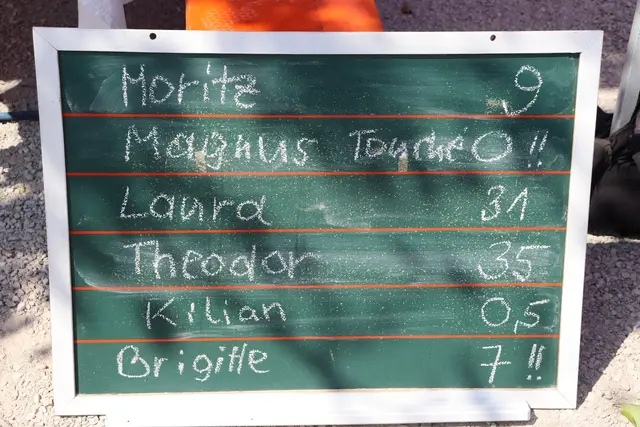 Moritz 9
Magnus Touché 0 !!
Laura 31
Theodor 35
Kilian 0,5
Brigitte 7 !!